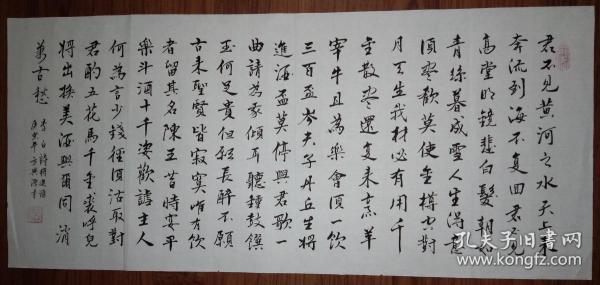 君不見黃河之水天上来
奔流到海不復回君不見
高堂明鏡悲白髮朝如
青絲暮成雪人生得意
須尽歡莫使金樽空對
月天生我材必有用千
金散尽還復来烹羊
宰牛且為樂會須一飲
三百盃岑夫子丹丘生將
進酒盃莫停與君歌一
曲請為我傾耳聽鐘鼓饌
玉何足貴但願長醉不願
古来聖賢皆寂寞唯有飲
者留其名陳王昔時宴平
樂斗酒十千恣歡謔主人
何為言少錢徑須沽取對
君酌五花馬千金裘呼兒
將出換美酒與爾同消
萬古愁
李白詩將進酒
孔夫子旧书网
www.kongfz.com